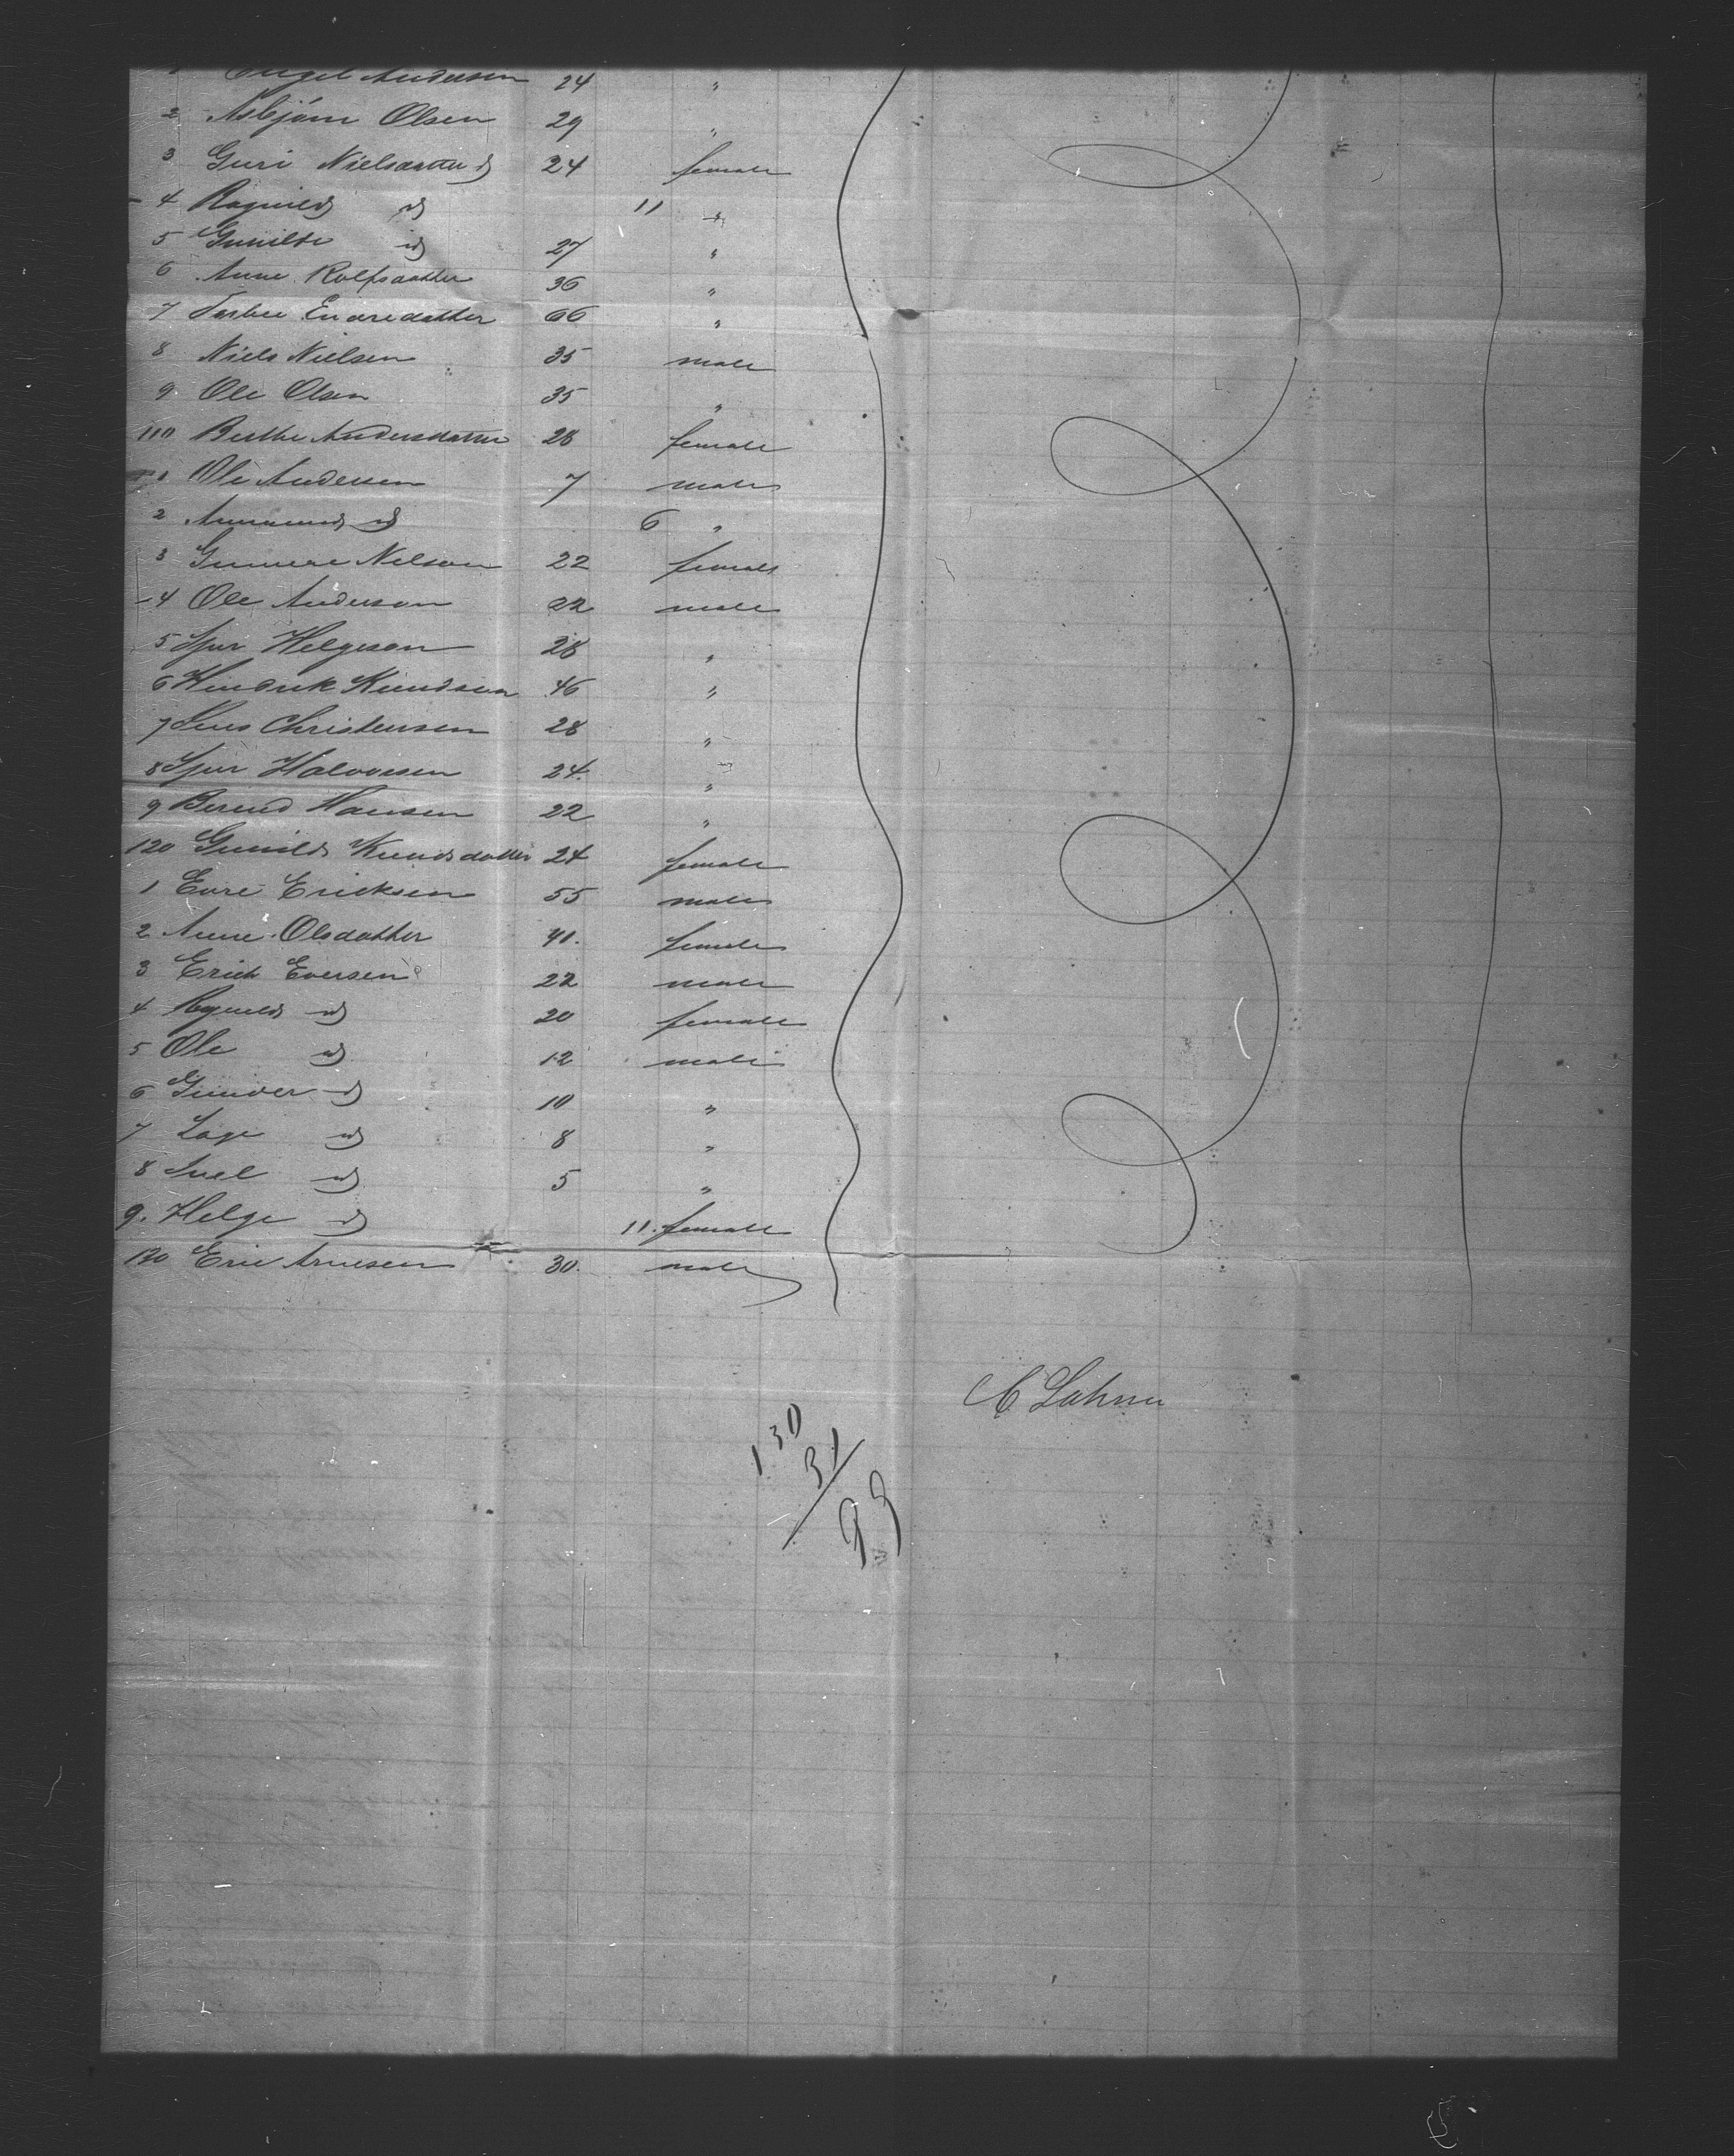 Andersen 24 "
2 Asbjörn Olsen 29 "
3 Guri Nielsdatter 24 female
4 Ragnild id 11 "
5 Gunilde id 27 "
6 Anne Rolfsdatter 36 "
7 Endredatter 66 "
8 Niels Nielsen 35 male
9 Ole Olsen 35 "
110 Berthe Andersdatter 28 female
1 Ole Andersen 7 male
2 Ammund id 6 "
3 Gunnere Nelson 22 female
4 Ole Anderson 22 male
5 Helgeson 28 "
6 Hendrik Knudsen 46 "
7 Jens Christensen 28 "
8 Halvorsen 24. "
9 Berend Hansen 22 "
120 Gunild Knudsdatter 24 female
1 Evre Ericksen 55 male
2 Anne Olsdatter 41. female
3 Erich Eversen 22 male
4 Ragnild id 20 female
5 Ole id 12 male
6 Gunder id 10 "
7 Lage id 8 "
8 id 5 "
9. Helge id 11. female
130 Eric Arnesen 30. male
130
31
99